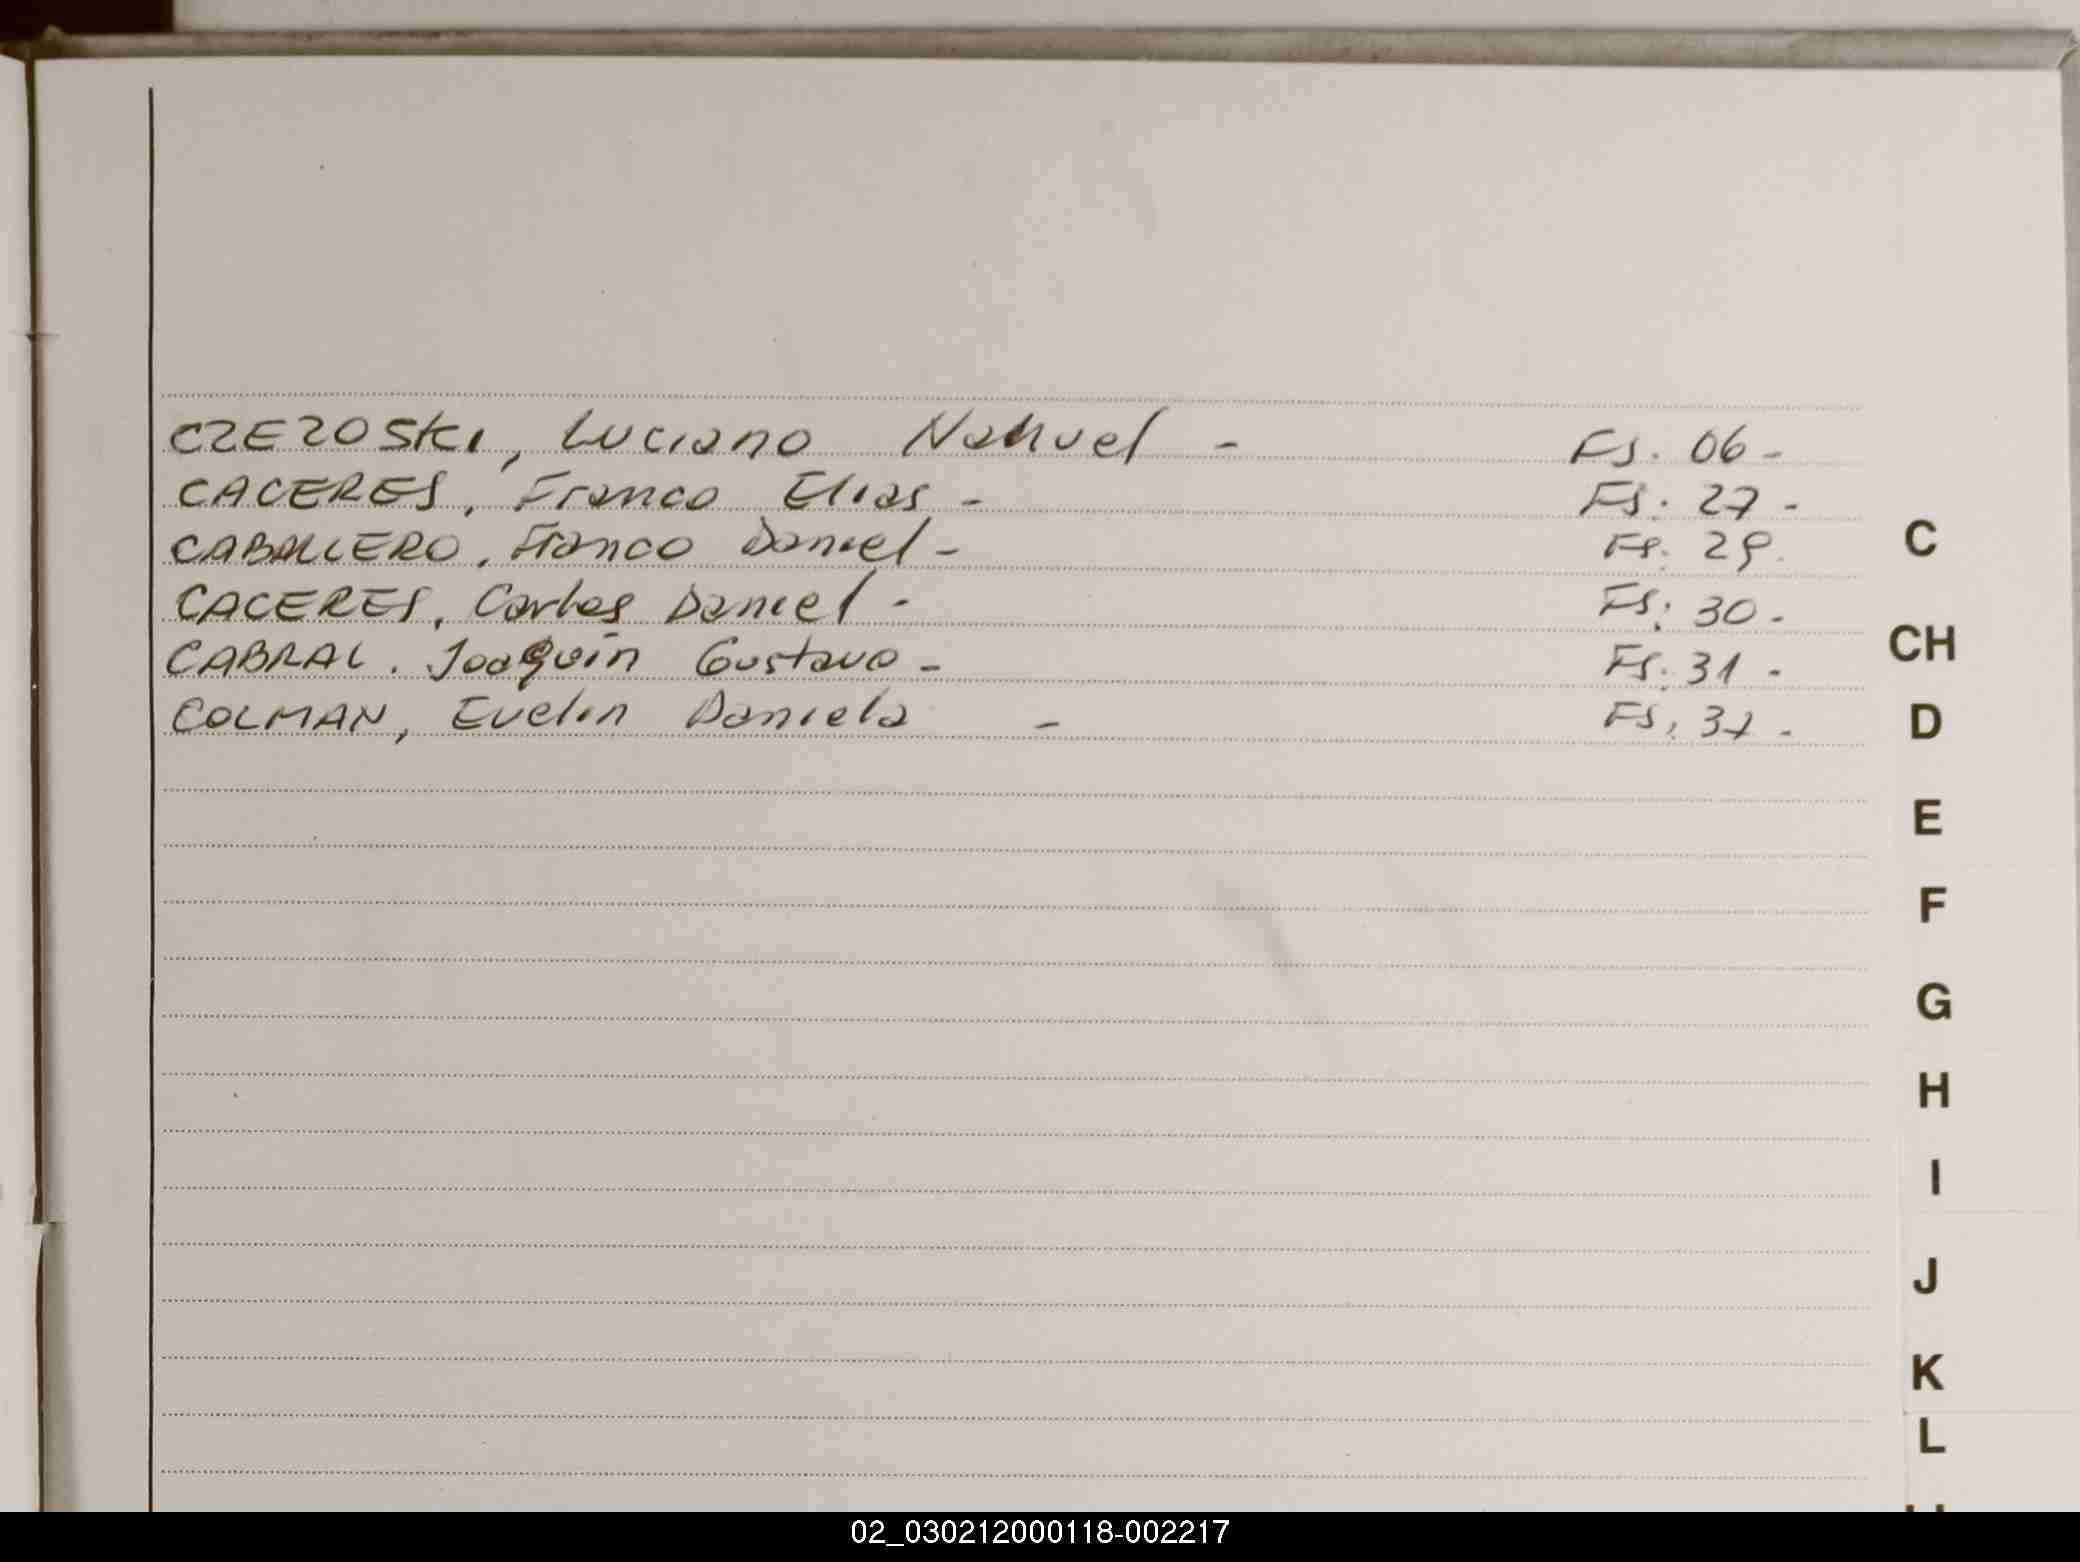 CZEZOSKI, Luciano Nahuel - Fs. 06 -
CACERES, Franco Elias - Fs. 27 -
CABALLERO, Franco Daniel - Fs. 29.
CACERES, Carlos Daniel - Fs. 30 -
CABRAL. Joaquín Gustavo - Fs. 31 -
COLMAN, Evelin Daniela - Fs. 37 -
C
CH
D
E
F
G
H
I
J
K
L
02_030212000118-002217